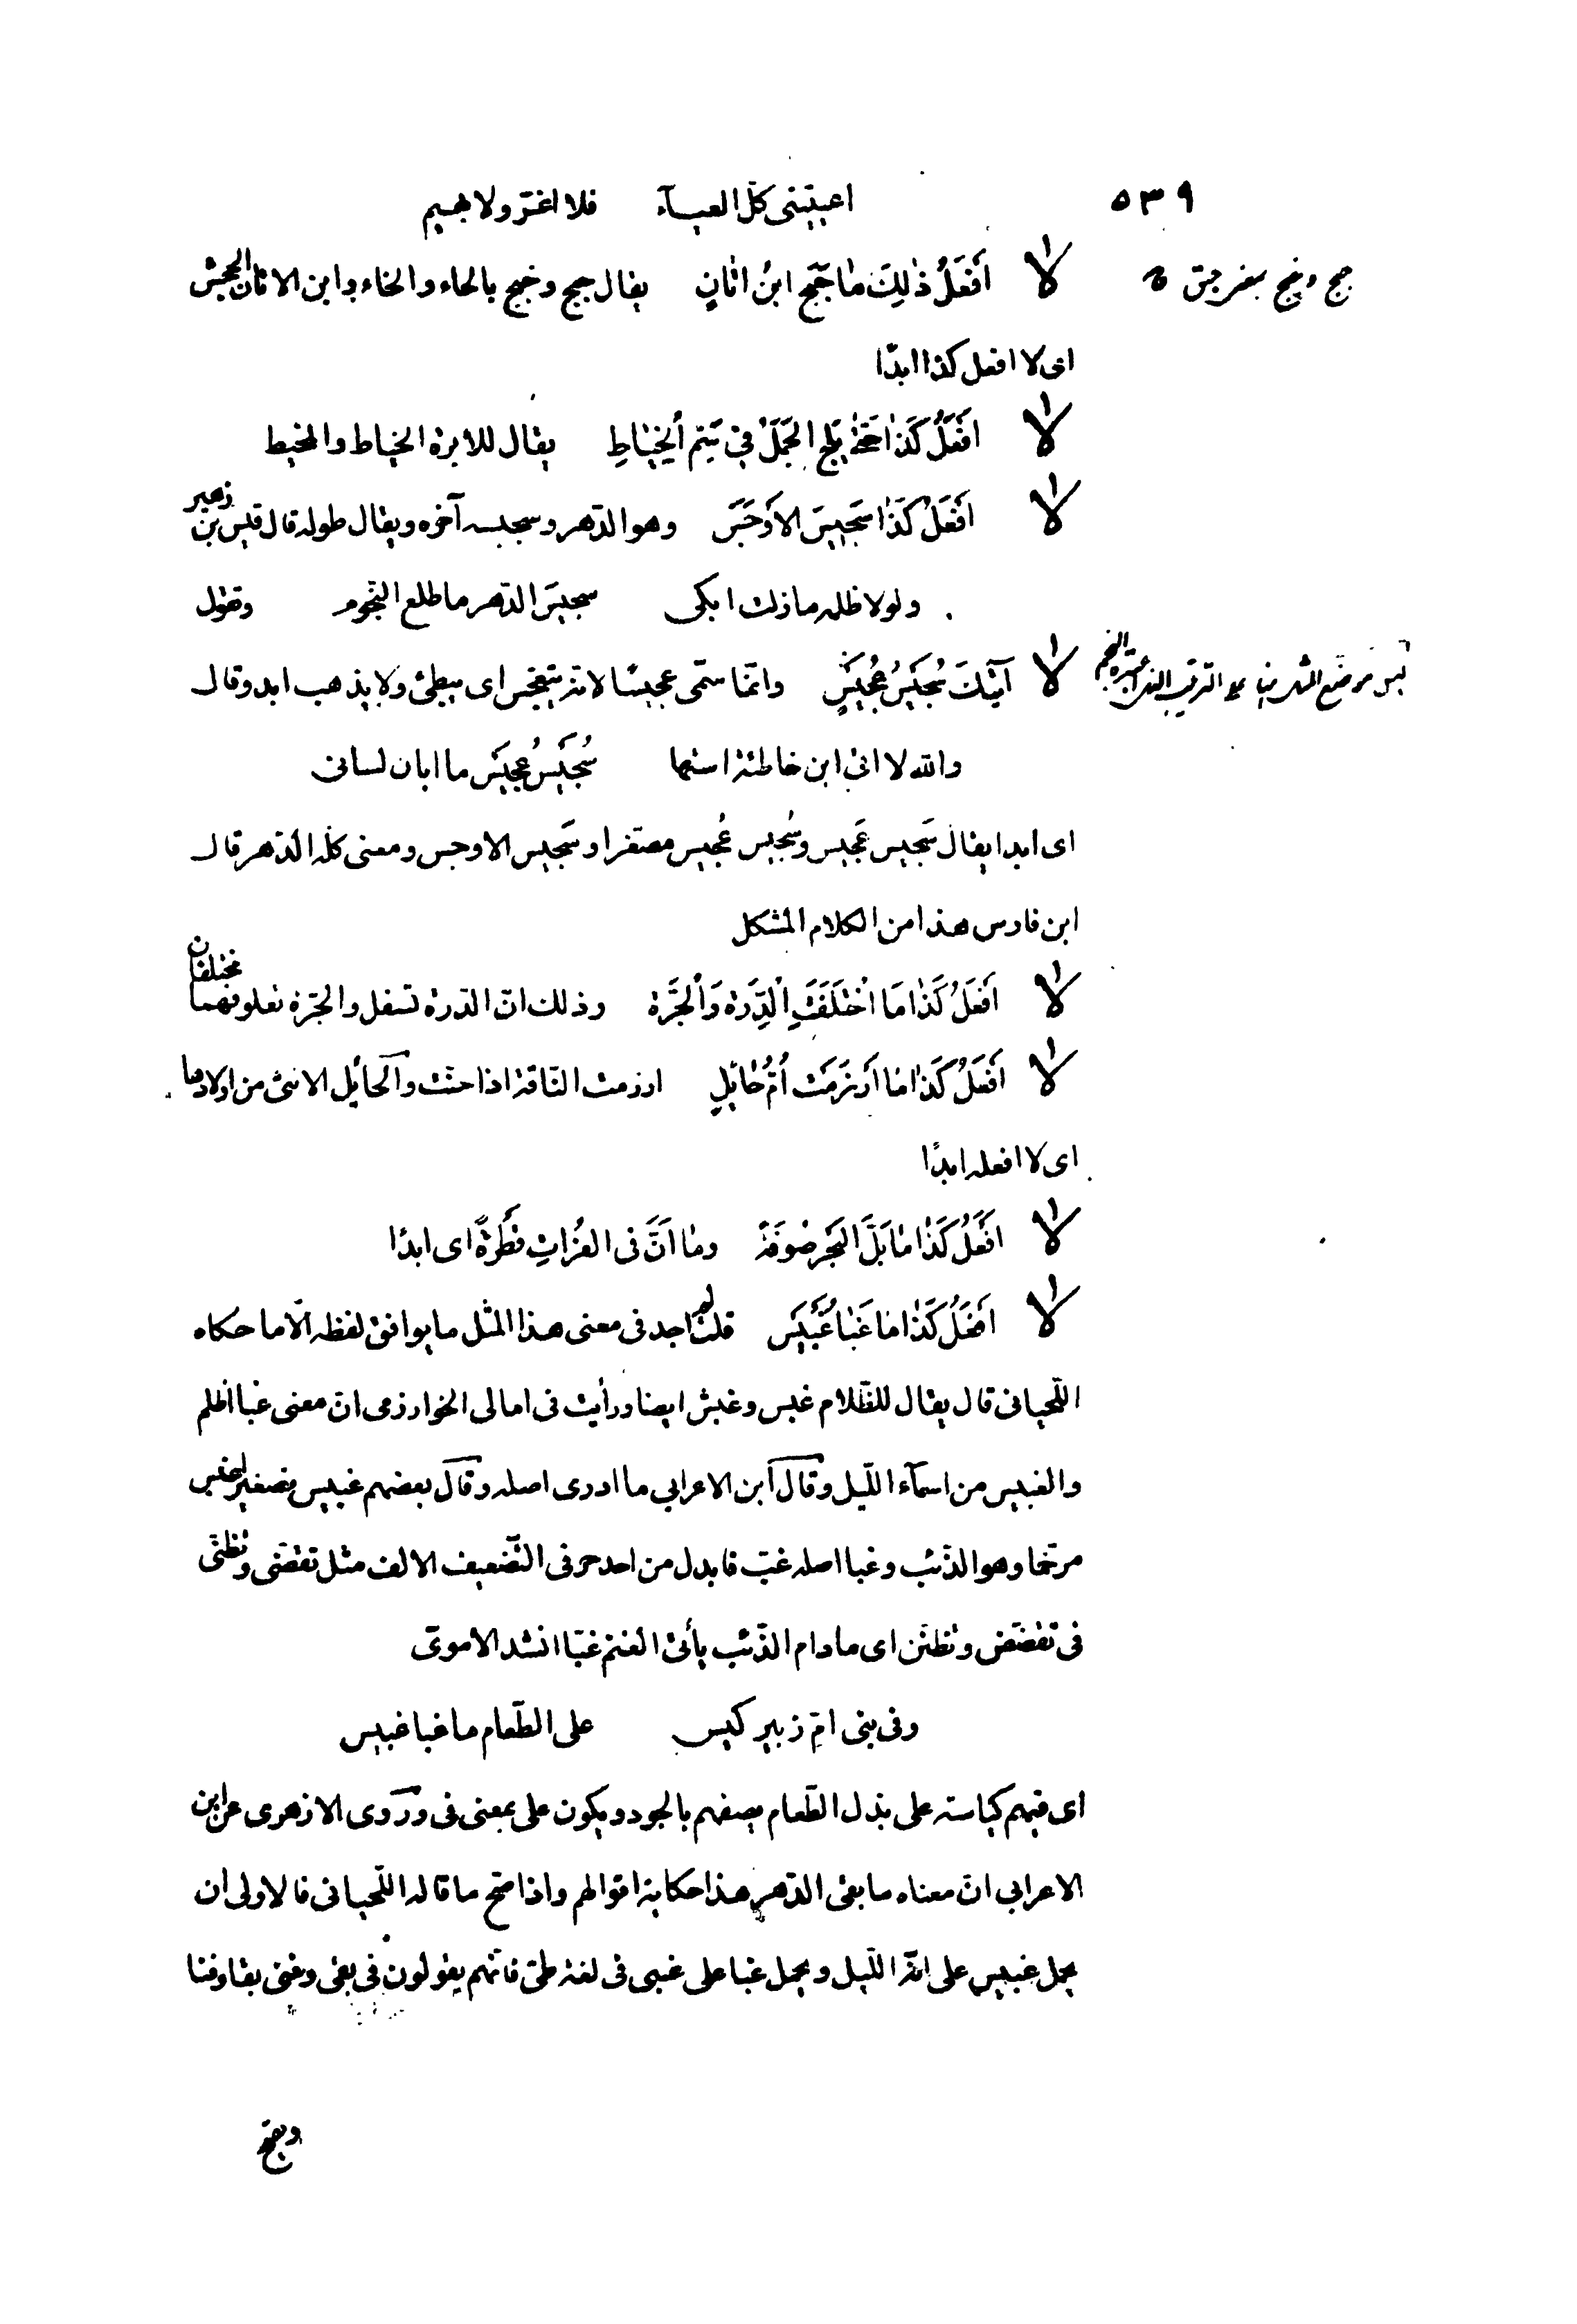 ٥٣٩
اعييتنى كلّ العيآء فلا اغرّ ولا بهيم
لا أفعَلُ ذٰلِكَ مٰا جَبَحَ ابنُ اتٰانٍ يقال جبح وخبج بالحاء والخاء وابن الاتان الجحش
اى لا افعل كذا ابدًا
لا افعَلُ كَذٰا حَتّٰى يَلِجَ الجَمَلُ فِي سَمِّ الْخِيٰاطِ يقال للابرة الخياط والمخيط
لا افعَلُ كَذٰا سَجِيسَ الأَوْجَسِ وهو الدّهر وسجيسه آخره ويقال طوله قال قيس بن زهير
ولولا ظلمه ما زلت ابكى سجيسَ الدّهر ما طلع النّجوم وتقول
لا آتِيْكَ سُجَيْسُ عُجَيْسٍ وانّما سمّى عجيسًا لانه يتعجّس اى يبطئ ولا يذهب ابد وقال
والله لا اتى ابن خاطئة استها سُجَيْسُ عُجَيْسٍ ما ابان لسانى
اى ابدا يقال سَجيس عَجيس وسُجيس عُجيس مصغّرا وسَجيس الاوجس ومعنى كلّه الدّهر قال
ابن فارس هذا من الكلام المشكل
لا أفعَلُ كَذٰا مَا اخْتَلَفَتِ الْدِّرَة وَالْجِرَّة وذلك انّ الدّرة تسفل والجرّة تعلو فهما مختلفان
لا أفعَلُ كَذٰا مٰا أرْزَمَتْ اُمُّ حٰائِلٍ ارزمت النّاقة اذا حنّت والحائل الانثى من اولادها
اى لا افعله ابدًا
لا افعَلُ كَذٰا مٰا بَلَّ البَحْر صُوفَة ومٰا اَنَّ فى الفُرٰاتِ قَطْرَةً اى ابدًا
لا افعَلُ كَذٰا مٰا غَبٰا غُبَيْس قلت لم اجد فى معنى هذا المثل ما يوافق لفظه الّا ما حكاه
اللّحيانى قال يقال للظّلام غبس وغبش ايضا ورأيت فى امالى الخوارزمى انّ معنى غبا اظلم
والغبيس من اسمآء اللّيل وقال ابن الاعرابي ما ادرى اصله وقال بعضهم غبيس تصغير اغبس
مرخّما وهو الذّئب وغبا اصله غبّ فابدل من احد حرفى التّضعيف الالف مثل تقضّى وتظنّى
فى تقضّض وتظنّن اى ما دام الذّئب يأتى الغنم غبّا انشد الاموىّ
وفى بنى امّ زبير كيس على الطّعام ما غبا غبيس
اى فيهم كياسة على بذل الطّعام يصفهم بالجود ويكون على بمعنى فى وروى الازهرى عن ابن
الاعرابي انّ معناه ما بقى الدّهر هذا حكاية اقوالهم واذا صحّ ما قاله اللّحيانى فالاولى ان
يحمل غبيس على انّه اللّيل ويحمل غبا على غبى فى لغة طىّ فانّهم يقولون فى بقى وفنى بقا وفنا